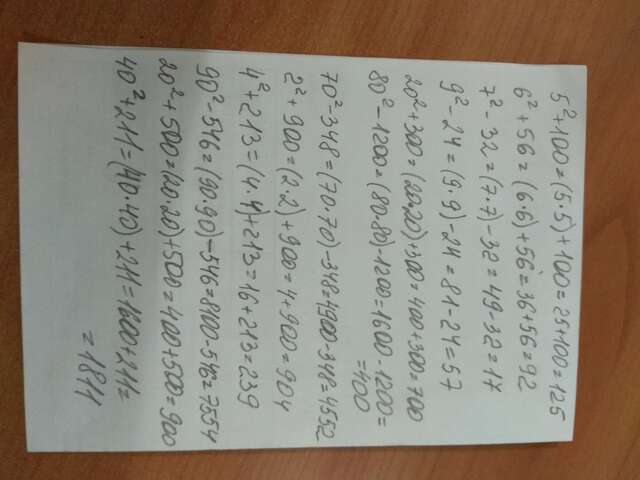 5²+100=(5·5)+100=25+100=125
6²+56=(6·6)+56=36+56=92
7²-32=(7·7-32=49-32=17
9²-24=(9·9)-24=81-24=57
20²+300=(20·20)+300=400+300=700
80²-1200=(80·80)-1200=1600-1200=
=400
70²-348=(70·70)-348=4900-348=4552
2²+900=(2·2)+900=4+900=904
4²+213=(4·4)+213=16+213=239
90²-546=(90·90)-546=8100-546=7554
20²+500=(20·20)+500=400+500=900
40²+211=(40·40)+211=1600+211=
=1811